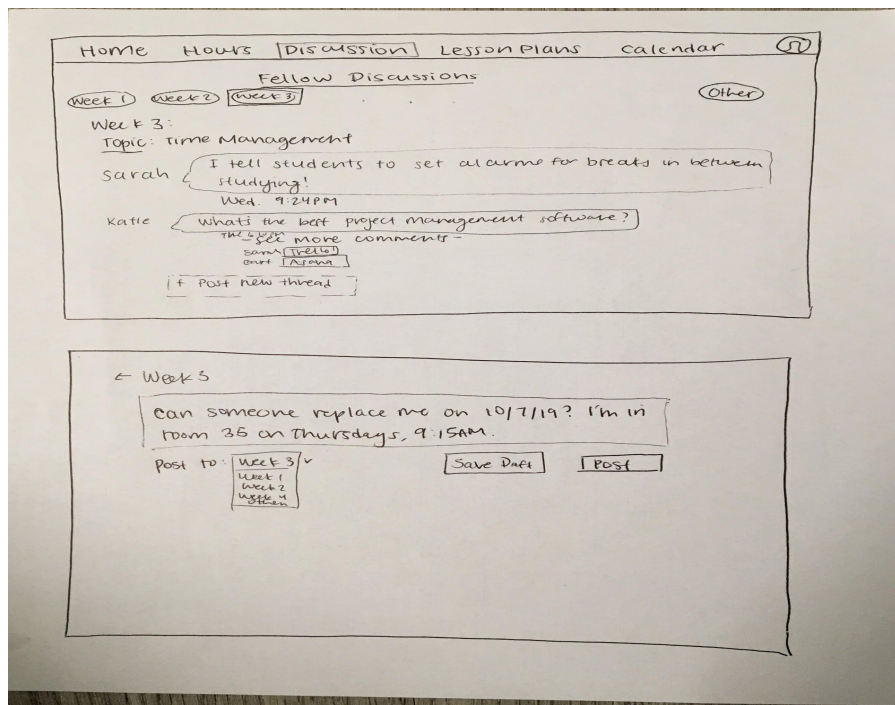 Home Hours Discussion Lesson Plans Calendar
Fellow Discussions
Week 1 Week 2 Week 3 Other
Week 3:
Topic: Time Management
Sarah I tell students to set alarms for breaks in between
studying!
Wed. 9:24PM
Katie What's the best project management software?
- see more comments -
Trello!
Asana
+ Post new thread
← Week 3
Can someone replace me on 10/7/19? I'm in
room 35 on Thursdays, 9:15AM.
Post to: Week 3 Save Daft Post
Week 1
Week 2
Week 4
Other